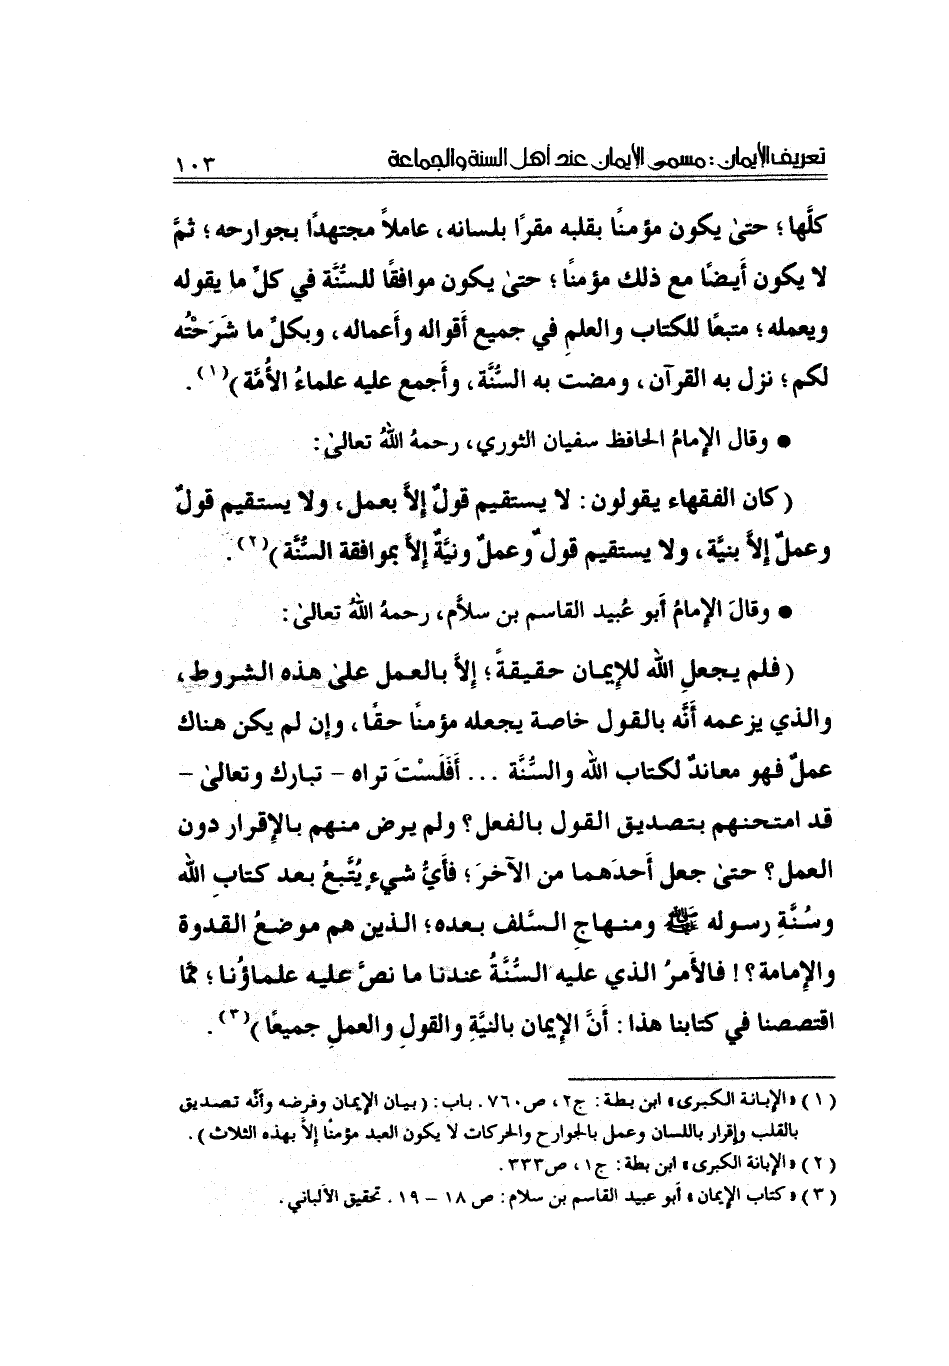 تعريف الإيمان : مسمى الإيمان عند أهل السنة والجماعة ١٠٣
كلَّها؛ حتىٰ يكون مؤمنًا بقلبه مقرًا بلسانه، عاملاً مجتهدًا بجوارحه؛ ثمَّ
لا يكون أيضًا مع ذلك مؤمنًا؛ حتىٰ يكون موافقًا للسُّنَّة في كلِّ ما يقوله
ويعمله؛ متبعًا للكتاب والعلمِ في جميع أقواله وأعماله، وبكلِّ ما شَرَحْتُه
لكم؛ نزل به القرآن، ومضت به السُّنَّة، وأجمع عليه علماءُ الأُمَّة)(١).
● وقال الإمامُ الحافظ سفيان الثوري، رحمهُ اللهُ تعالىٰ:
(كان الفقهاء يقولون: لا يستقيم قولٌ إلاَّ بعمل، ولا يستقيم قولٌ
وعملٌ إلاَّ بنيَّة، ولا يستقيم قولٌ وعملٌ ونيَّةٌ إلاَّ بموافقة السُّنَّة)(٢).
● وقالَ الإمامُ أبو عُبيد القاسم بن سلاَّم، رحمهُ اللهُ تعالىٰ:
(فلم يجعلِ الله للإيمان حقيقةً؛ إلاَّ بالعمل علىٰ هذه الشروط،
والذي يزعمه أنَّه بالقول خاصة يجعله مؤمنًا حقًا، وإن لم يكن هناك
عملٌ فهو معاندٌ لكتاب الله والسُّنَّة ... أَفَلَسْتَ تراه - تبارك وتعالىٰ -
قد امتحنهم بتصديق القول بالفعل؟ ولم يرض منهم بالإقرار دون
العمل؟ حتىٰ جعل أحدَهما من الآخرَ؛ فأيُّ شيءٍ يُتَّبعُ بعد كتابِ الله
وسُنَّةِ رسوله ﷺ ومنهاجِ السَّلف بعده؛ الذين هم موضعُ القدوة
والإمامة؟! فالأمرُ الذي عليه السُّنَّةُ عندنا ما نصَّ عليه علماؤُنا؛ ممَّا
اقتصصنا في كتابنا هذا: أنَّ الإيمان بالنيَّةِ والقولِ والعملِ جميعًا)(٣).
(١) «الإبانة الكبرى» ابن بطة: ج٢، ص٧٦٠. باب: (بيان الإيمان وفرضه وأنَّه تصديق
بالقلب وإقرار باللسان وعمل بالجوارح والحركات لا يكون العبد مؤمنًا إلاَّ بهذه الثلاث).
(٢) «الإبانة الكبرى» ابن بطة: ج١، ص٣٣٣.
(٣) «كتاب الإيمان» أبو عبيد القاسم بن سلام: ص ١٨ - ١٩. تحقيق الألباني.